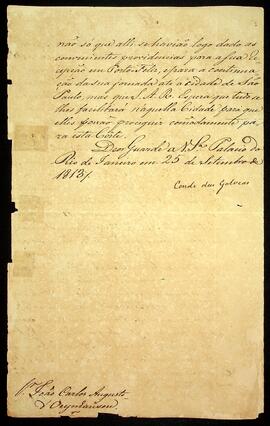 não só que alli se havião logo dado as
convenientes providencias para a sua re-
cepção em Porto Feliz, e para a continua-
ção da sua jornada até a cidade de São
Paulo, mas que S. A. R. Espera que tudo se
lhes facilitará naquella Cidade para que
elles possão proseguir comodamente pa-
ra esta Côrte.
Deos Guarde a V. S.ª Palacio do
Rio de Janeiro em 25 de Setembro de
1813.
Conde das Galveas
S.r João Carlos Augusto
d'Oeynhausen.